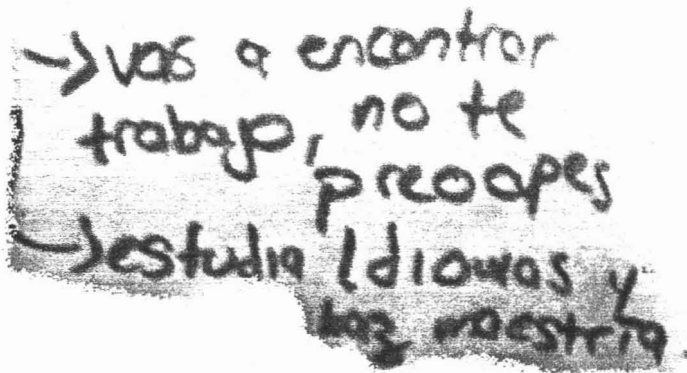 → vas a encontrar
trabajo, no te
preocupes
→ estudia Idiomas y
haz maestría.